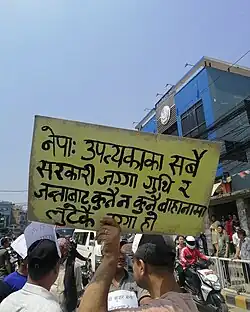 नेपाः उपत्यकाका सबै
सरकारी जग्गा गुठि र
जन्ताबाट कुनै न कुनै बाहानामा
लुटेको जग्गा हो